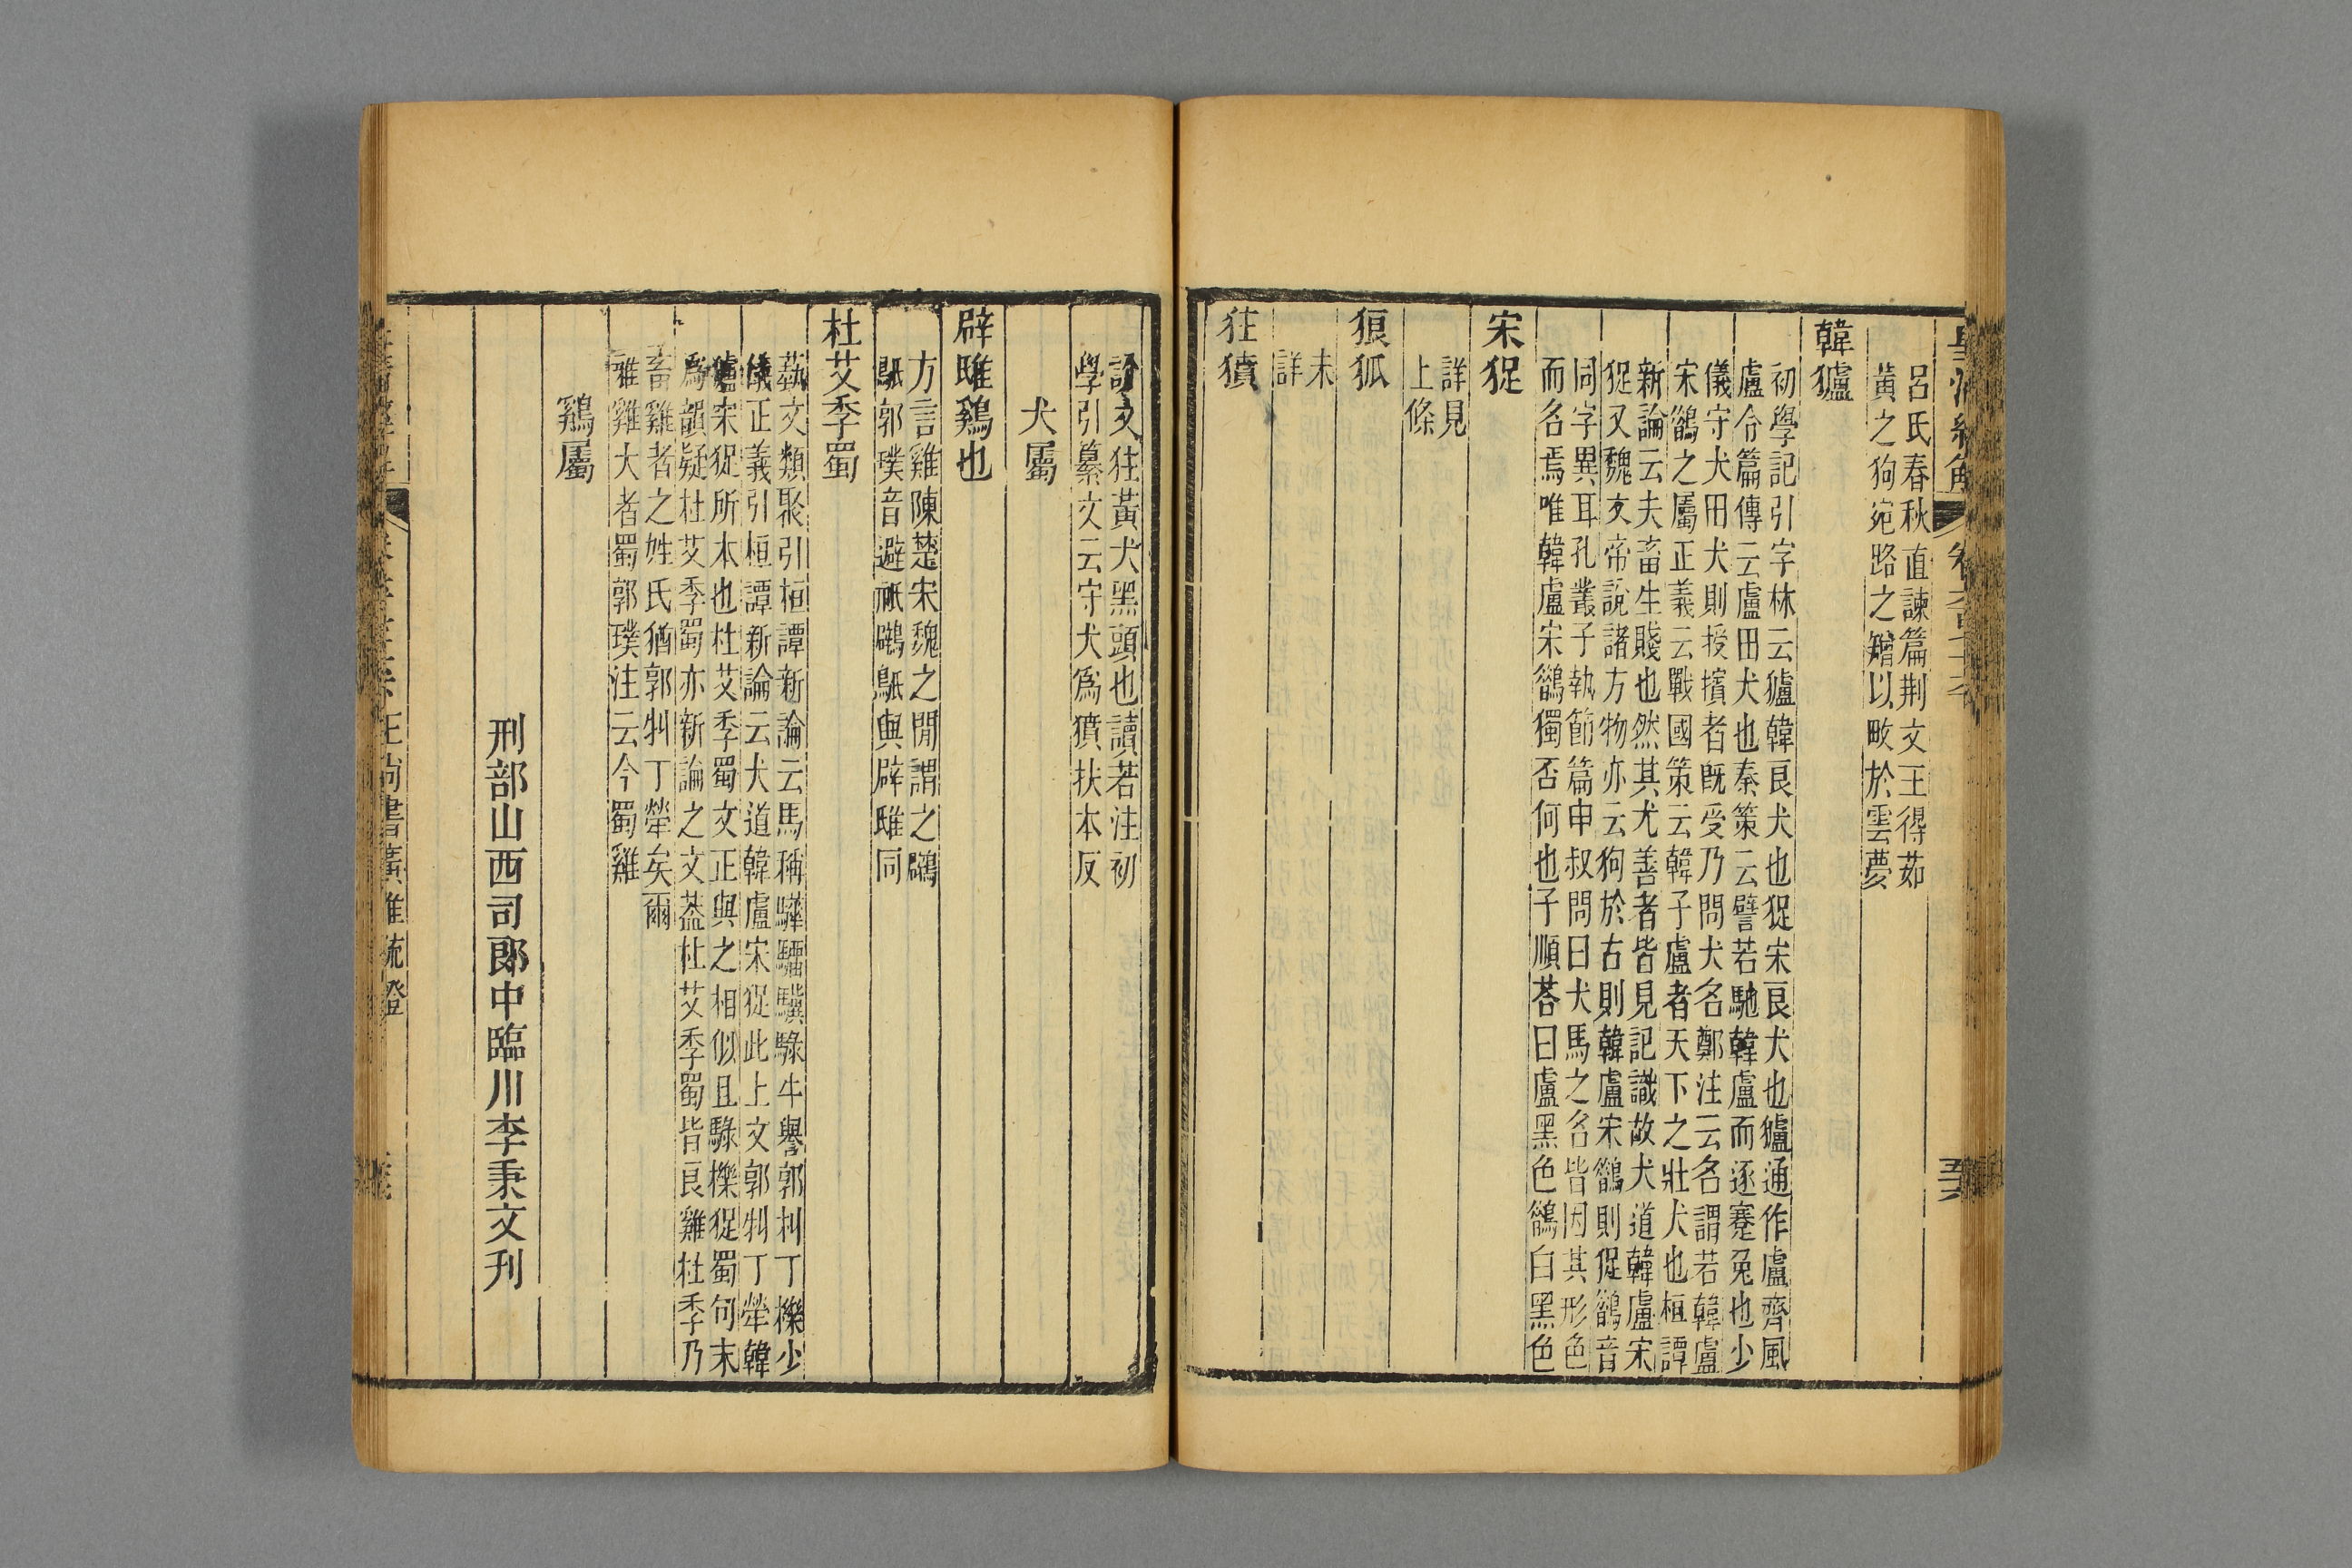 呂氏春秋直諫篇荆文王得茹
黃之狗宛路之矰以畋於雲夢
韓獹
初學記引字林云獹韓良犬也猣宋良犬也獹通作盧齊風
盧令篇傳云盧田犬也秦策云譬若馳韓盧而逐蹇兔也少
儀守犬田犬則授擯者旣受乃問犬名鄭注云名謂若韓盧
宋鵲之屬正義云戰國策云韓子盧者天下之壯犬也桓譚
新論云夫畜生賤也然其尤善者皆見記識故犬道韓盧宋
猣又魏文帝說諸方物亦云狗於古則韓盧宋鵲則猣鵲音
同字異耳孔叢子執節篇申叔問曰犬馬之名皆因其形色
而名焉唯韓盧宋鵲獨否何也子順荅曰盧黑色鵲白黑色
宋猣
詳見
上條
狼狐
未
詳
狂獖
說文狂黃犬黑頭也讀若注初
學引纂文云守犬爲獖扶本反
犬屬
辟雎鷄也
方言雞陳楚宋魏之閒謂之鸊
䳄郭璞音避祇鸊䳄與辟雎同
杜艾季蜀
蓺文類聚引桓譚新論云馬稱驊騮驥騄牛譽郭椒丁櫟少
儀正義引桓譚新論云犬道韓盧宋猣此上文郭㸨丁犖韓
獹宋猣所本也杜艾季蜀文正與之相似且騄櫟猣蜀句末
爲韻疑杜艾季蜀亦新論之文葢杜艾季蜀皆良雞杜季乃
畜雞者之姓氏猶郭㸨丁犖矣爾
雅雞大者蜀郭璞注云今蜀雞
鷄屬
刑部山西司郞中臨川李秉文刋
王尚書廣雅疏證